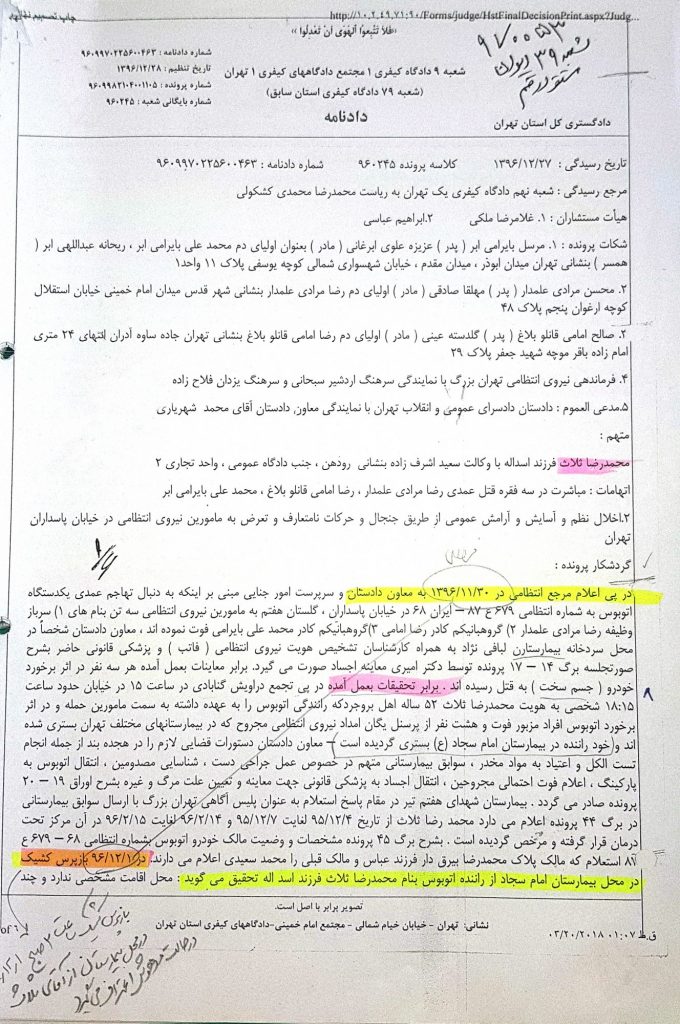 چاپ تصمیم نهایی
http://10.2.49.71:90/Forms/judge/HstFinalDecisionPrint.aspx?Judg...
«فلا تتبعوا الهوی ان تعدلوا»
شماره دادنامه : ۹۶۰۹۹۷۰۲۲۵۶۰۰۴۶۳
تاریخ تنظیم : ۱۳۹۶/۱۲/۲۸
شماره پرونده : ۹۶۰۹۹۸۲۱۰۴۰۰۱۱۰۵
شماره بایگانی شعبه : ۹۶۰۲۴۵
شعبه ۹ دادگاه کیفری ۱ مجتمع دادگاههای کیفری ۱ تهران
(شعبه ۷۹ دادگاه کیفری استان سابق)
دادنامه
۹۷۰۰۵۳
شعبه ۳۹ دیوان
دادگستری کل استان تهران
تاریخ رسیدگی : ۱۳۹۶/۱۲/۲۷ کلاسه پرونده ۹۶۰۲۴۵ شماره دادنامه : ۹۶۰۹۹۷۰۲۲۵۶۰۰۴۶۳
مرجع رسیدگی : شعبه نهم دادگاه کیفری یک تهران به ریاست محمدرضا محمدی کشکولی
هیأت مستشاران : ۱. غلامرضا ملکی ۲.ابراهیم عباسی
شکات پرونده : ۱. مرسل بایرامی ابر ( پدر ) عزیزه علوی ایرغانی ( مادر ) بعنوان اولیای دم محمد علی بایرامی ابر ، ریحانه عبداللهی ابر (
همسر ) بنشانی تهران میدان ابوذر ، میدان مقدم ، خیابان شهسواری شمالی کوچه یوسفی پلاک ۱۱ واحد۱
۲. محسن مرادی علمدار ( پدر ) مهلقا صادقی ( مادر ) اولیای دم رضا مرادی علمدار بنشانی شهر قدس میدان امام خمینی خیابان استقلال
کوچه ارغوان پنجم پلاک ۴۸
۲. صالح امامی قانلو بلاغ ( پدر ) گلدسته عینی ( مادر ) اولیای دم رضا امامی قانلو بلاغ بنشانی تهران جاده ساوه آدران انتهای ۲۴ متری
امام زاده باقر موچه شهید جعفر پلاک ۲۹
۴. فرماندهی نیروی انتظامی تهران بزرگ با نمایندگی سرهنگ اردشیر سبحانی و سرهنگ یزدان فلاح زاده
۵.مدعی العموم : دادستان دادسرای عمومی و انقلاب تهران با نمایندگی معاون دادستان آقای محمد شهریاری
متهم :
محمدرضا ثلاث فرزند اسداله با وکالت سعید اشرف زاده بنشانی رودهن ، جنب دادگاه عمومی ، واحد تجاری ۲
اتهامات : مباشرت در سه فقره قتل عمدی رضا مرادی علمدار ، رضا امامی قانلو بلاغ ، محمد علی بایرامی ابر
۲.اخلال نظم و آسایش و آرامش عمومی از طریق جنجال و حرکات نامتعارف و تعرض به مامورین نیروی انتظامی در خیابان پاسداران
تهران
گردشکار پرونده :
در پی اعلام مرجع انتظامی در ۱۳۹۶/۱۱/۳۰ به معاون دادستان و سرپرست امور جنایی مبنی بر اینکه به دنبال تهاجم عمدی یکدستگاه
اتوبوس به شماره انتظامی ۶۷۹ ع ۸۷ – ایران ۶۸ در خیابان پاسداران ، گلستان هفتم به مامورین نیروی انتظامی سه تن بنام های ۱) سرباز
وظیفه رضا مرادی علمدار ۲) گروهبانیکم کادر رضا امامی ۳)گروهبانیکم کادر محمد علی بایرامی فوت نموده اند ، معاون دادستان شخصاً در
محل سردخانه بیمارستان لبافی نژاد به همراه کارشناسان تشخیص هویت نیروی انتظامی ( فاتب ) و پزشکی قانونی حاضر بشرح
صورتجلسه برگ ۱۴ – ۱۷ پرونده توسط دکتر امیری معاینه اجساد صورت می گیرد. برابر معاینات بعمل آمده هر سه نفر در اثر برخورد
خودرو ( جسم سخت ) به قتل رسیده اند . برابر تحقیقات بعمل آمده در پی تجمع دراویش گنابادی در ساعت ۱۵ در خیابان حدود ساعت
۱۸:۱۵ شخصی به هویت محمدرضا ثلاث ۵۲ ساله اهل بروجردکه رانندگی اتوبوس را به عهده داشته به سمت مامورین حمله و در اثر
برخورد اتوبوس افراد مزبور فوت و هشت نفر از پرسنل یگان امداد نیروی انتظامی مجروح که در بیمارستانهای مختلف تهران بستری شده
اند و(خود راننده در بیمارستان امام سجاد (ع) بستری گردیده است) – معاون دادستان دستورات قضایی لازم را در هجده بند از جمله انجام
تست الکل و اعتیاد به مواد مخدر ، سوابق بیمارستانی متهم در خصوص عمل جراحی دست ، شناسایی مصدومین ، انتقال اتوبوس به
پارکینگ ، اعلام فوت احتمالی مجروحین ، انتقال اجساد به پزشکی قانونی جهت معاینه و تعیین علت مرگ و غیره بشرح اوراق ۱۹ – ۲۰
پرونده صادر می گردد . بیمارستان شهدای هفتم تیر در مقام پاسخ استعلام به عنوان پلیس آگاهی تهران بزرگ با ارسال سوابق بیمارستانی
در برگ ۴۴ پرونده اعلام می دارد محمد رضا ثلاث از تاریخ ۹۵/۱۲/۴ لغایت ۹۵/۱۲/۷ و ۹۶/۲/۱۴ لغایت ۹۶/۲/۱۵ در آن مرکز تحت
درمان قرار گرفته و مرخص گردیده است . بشرح برگ ۴۵ پرونده مشخصات و وضعیت مالک خودرو اتوبوس بشماره انتظامی ۶۸ – ۶۷۹ ع
۸۷ استعلام که مالک پلاک محمدرضا بیرق دار فرزند عباس و مالک قبلی را محمد سعیدی اعلام می دارند. در ۹۶/۱۲/۱ بازپرس کشیک
در محل بیمارستان امام سجاد از راننده اتوبوس بنام محمدرضا ثلاث فرزند اسد اله تحقیق می گوید : محل اقامت مشخصی ندارد و چند
تصویر برابر با اصل است.
نشانی: تهران - خیابان خیام شمالی - مجتمع امام خمینی-دادگاههای کیفری استان تهران
۰۳/۲۰/۲۰۱۸ ۰۱:۰۷ ق.ظ